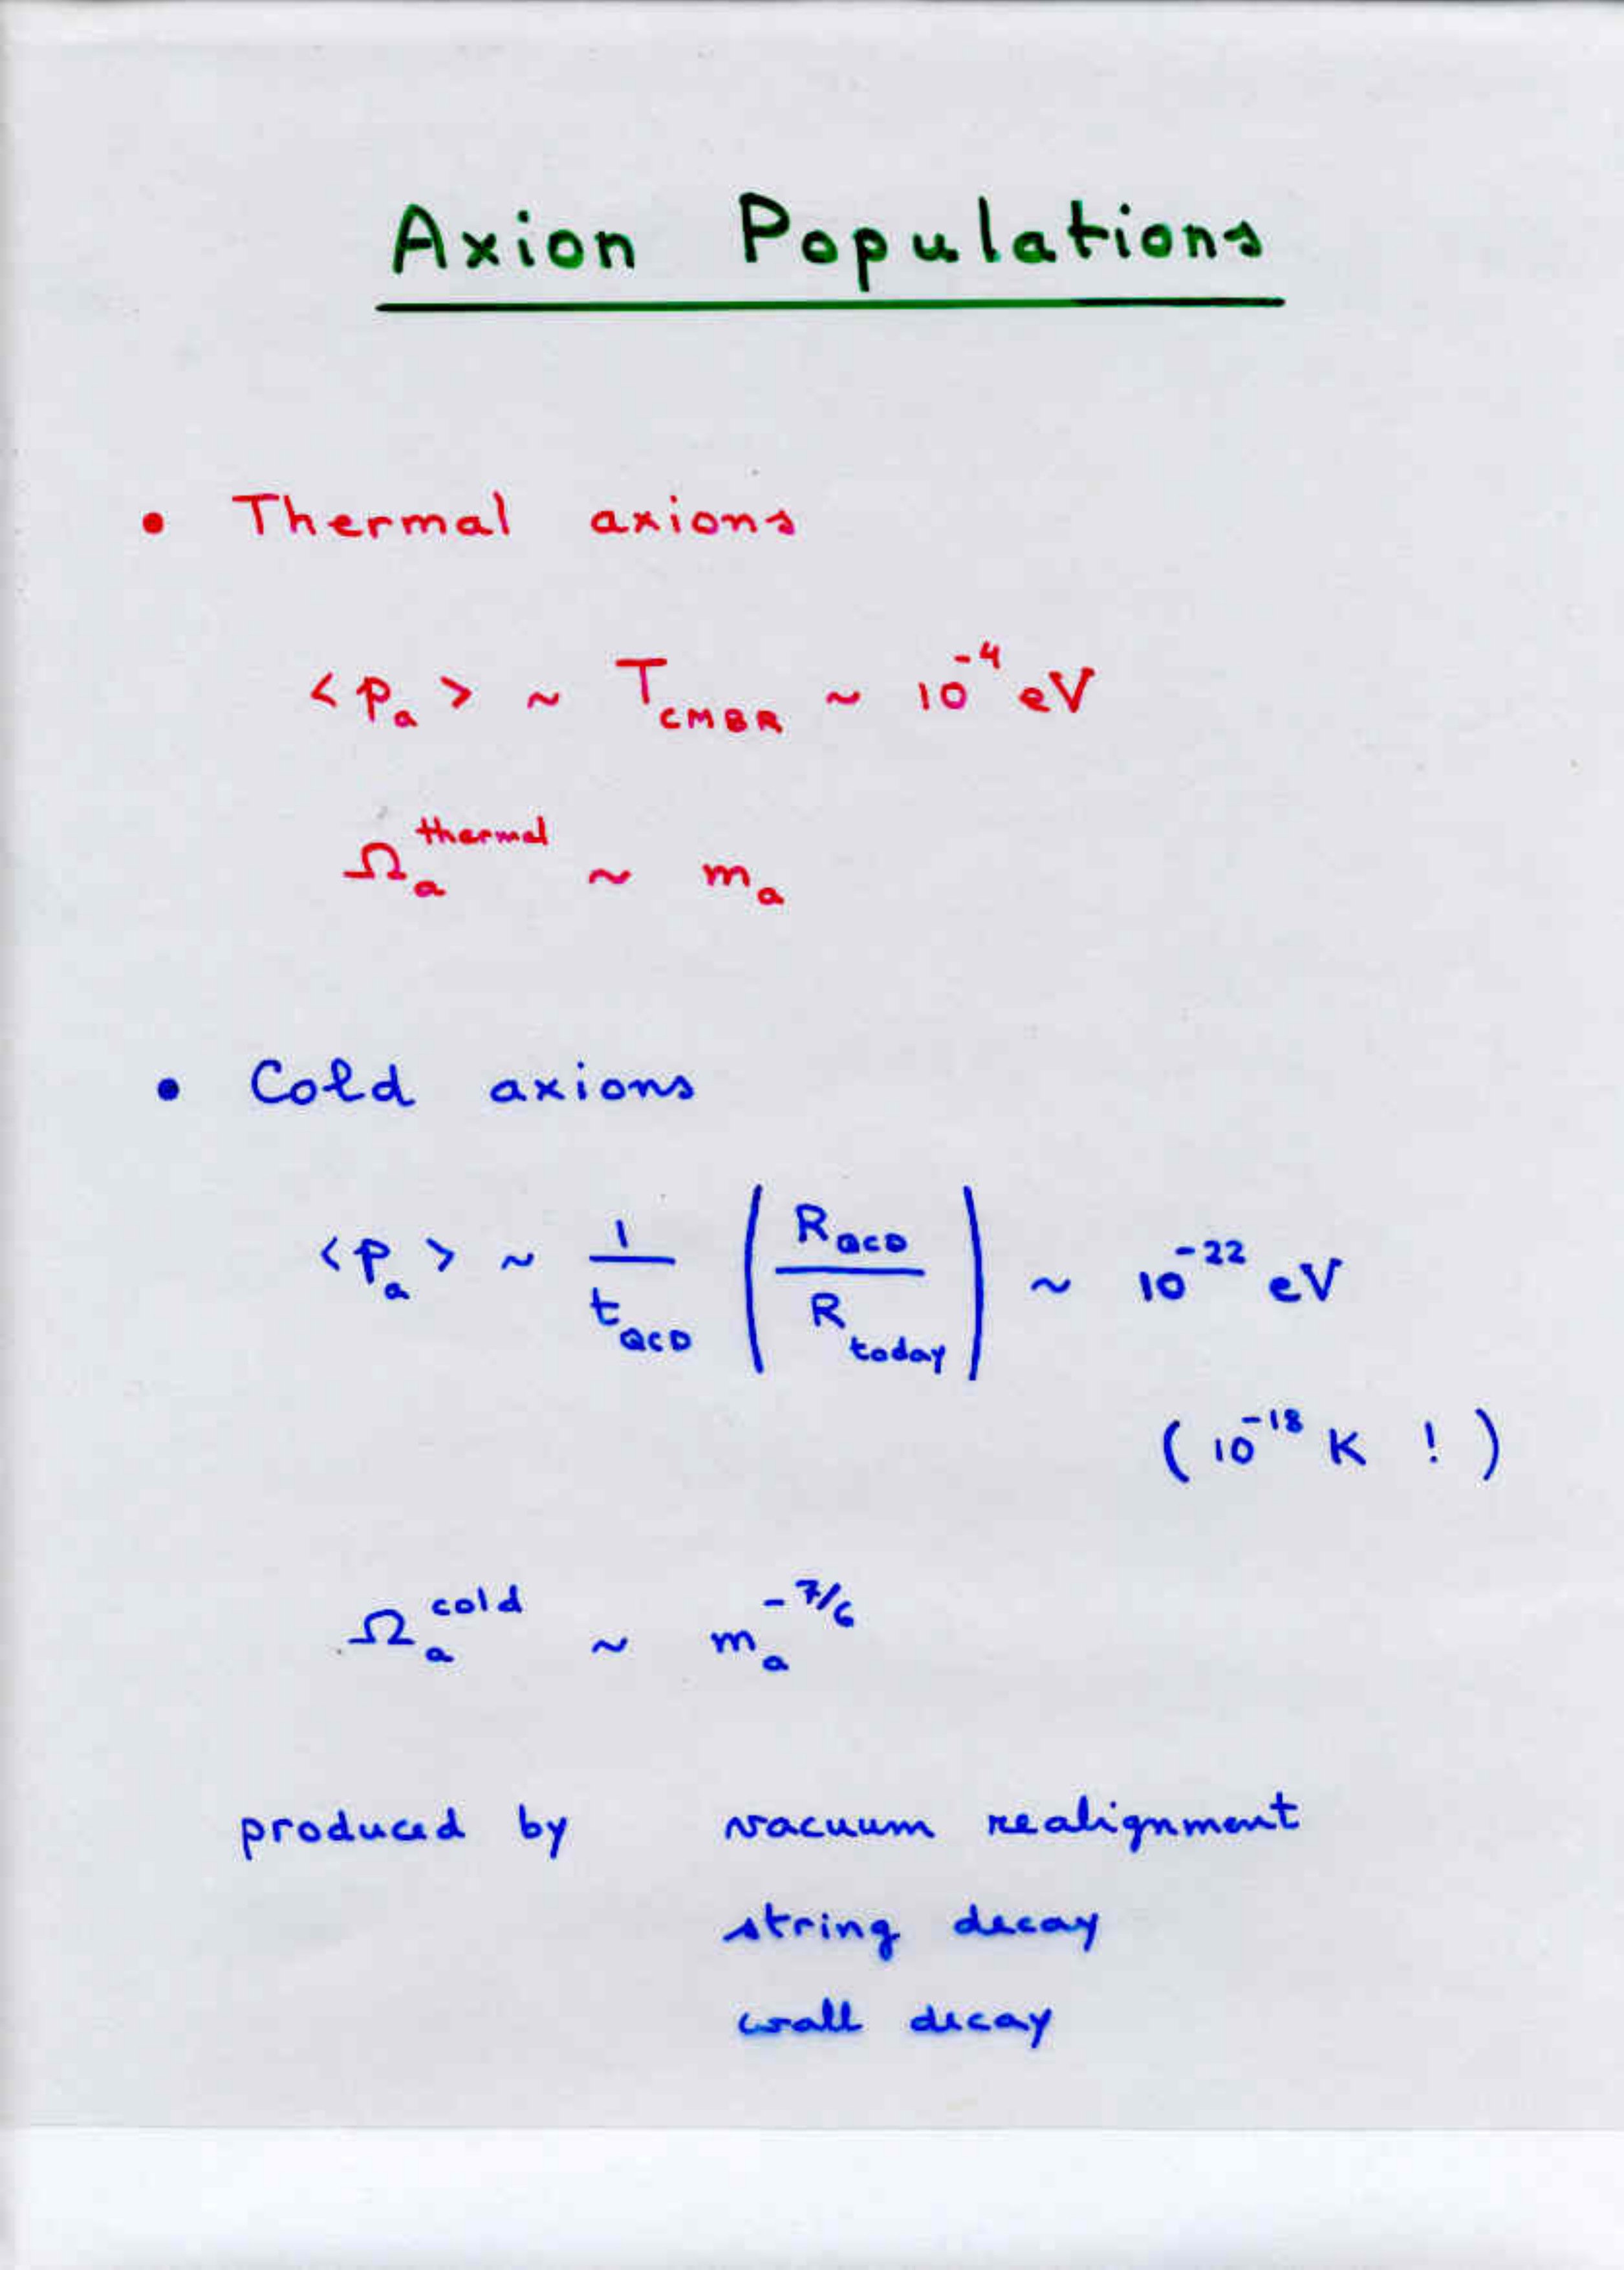 Axion Populations
• Thermal axions
<p_a> ~ T_CMBR ~ 10^-4 eV
Ω_a^thermal ~ m_a
• Cold axions
<p_a> ~ 1/t_QCD (R_QCD/R_today) ~ 10^-22 eV
(10^-18 K !)
Ω_a^cold ~ m_a^-7/6
produced by vacuum realignment
string decay
wall decay